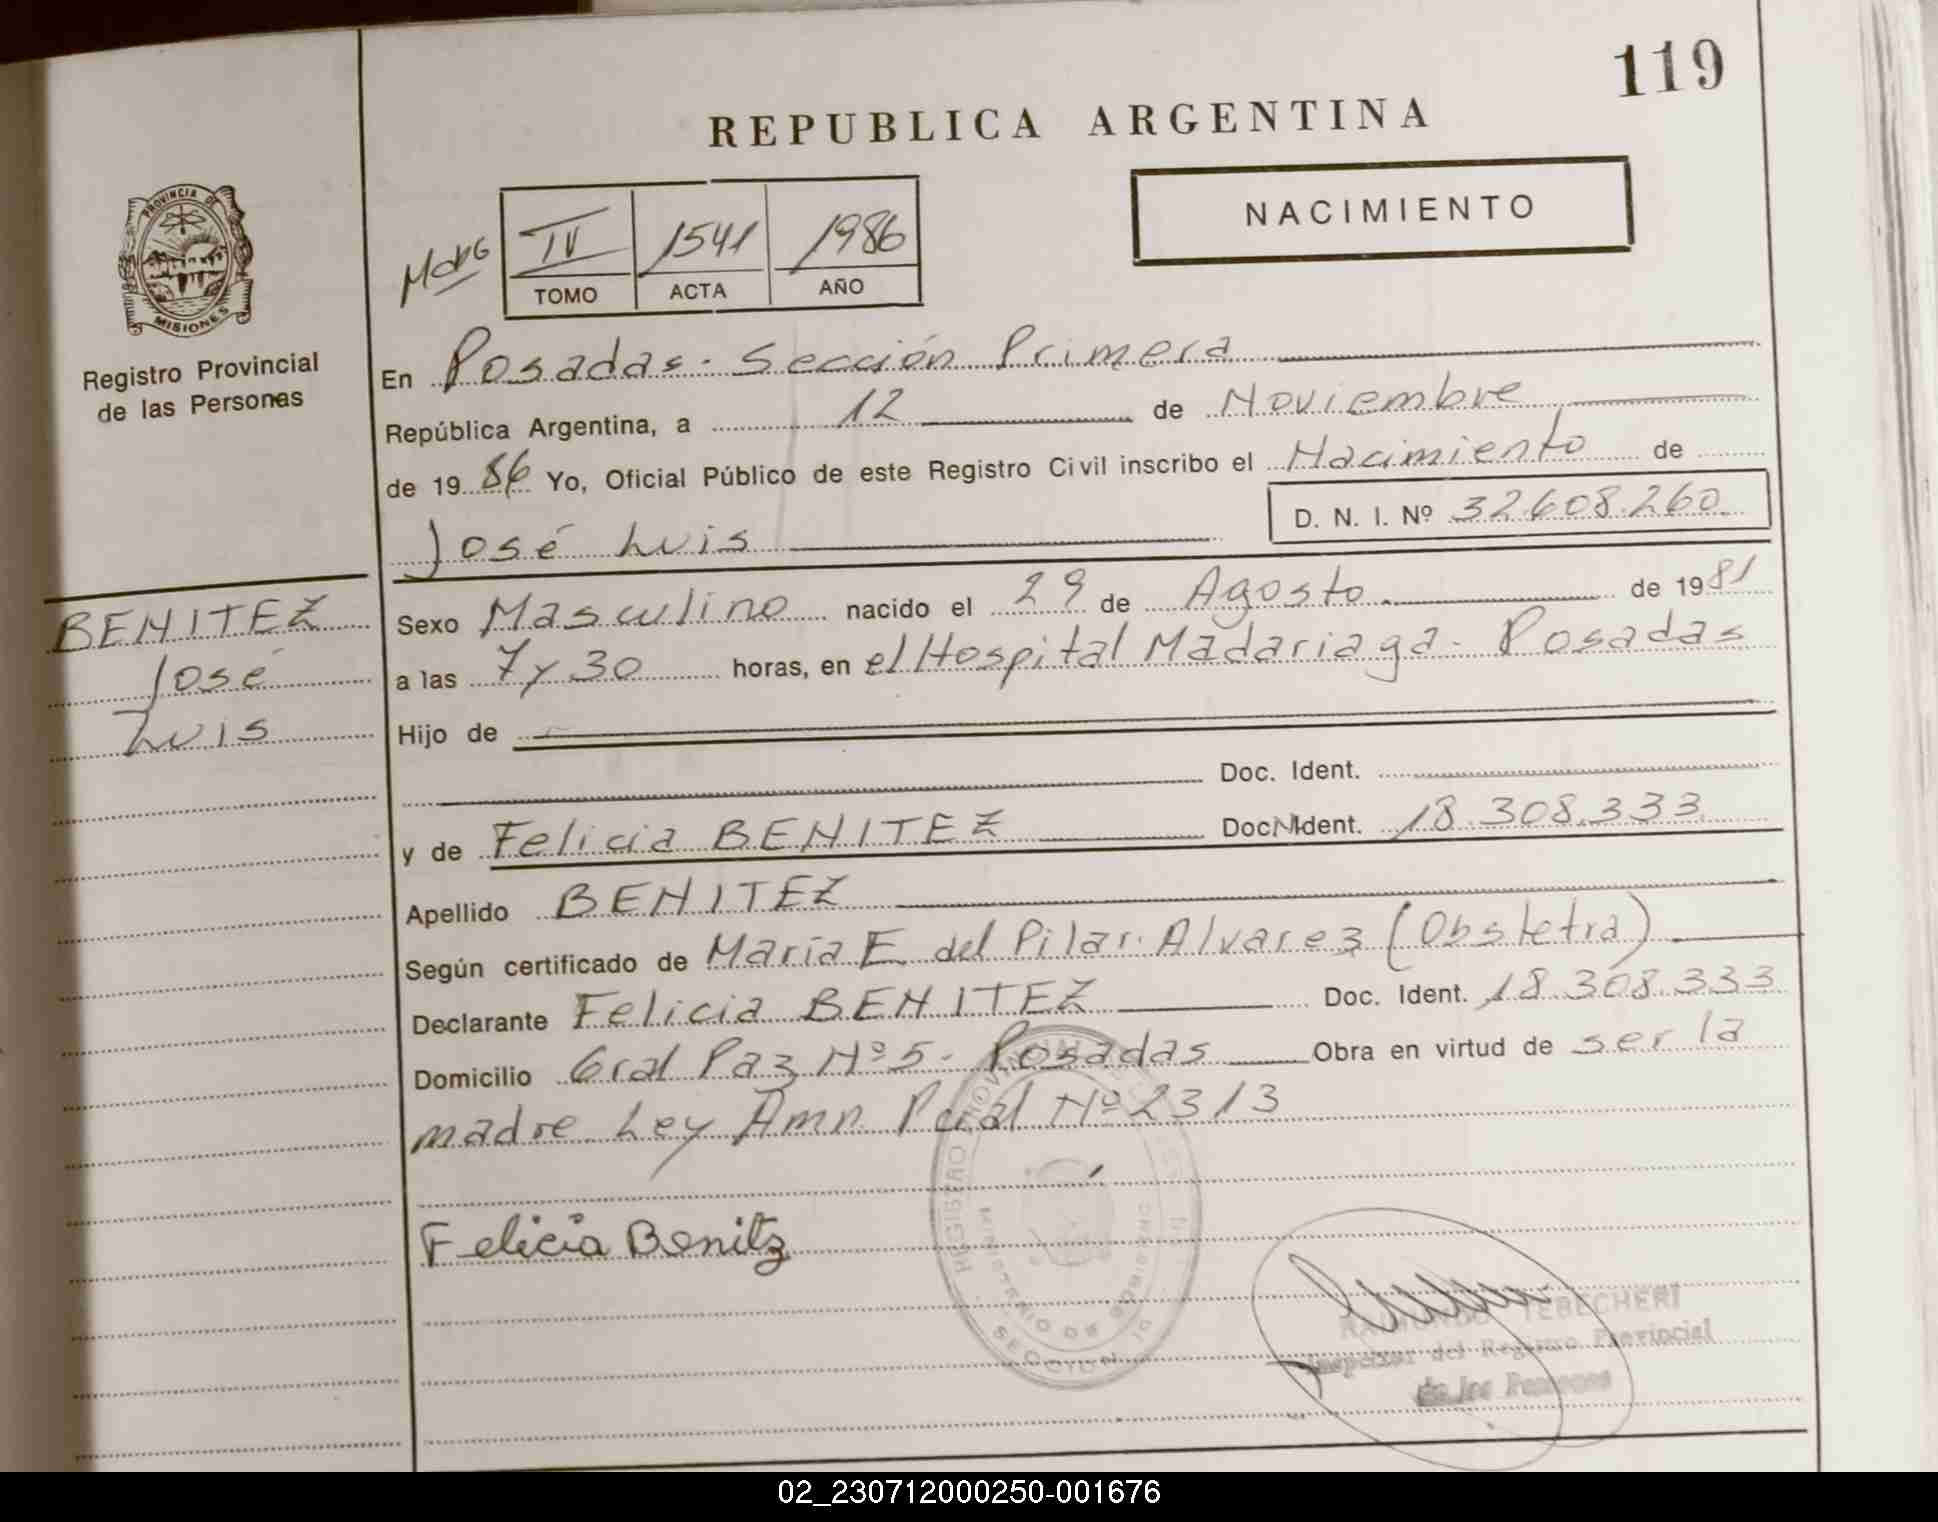 119
REPUBLICA ARGENTINA
NACIMIENTO
PROVINCIA DE
MISIONES
Registro Provincial
de las Personas
IV 1541 1986
TOMO ACTA AÑO
En Posadas - Sección Primera
República Argentina, a 12 de Noviembre
de 1986 Yo, Oficial Público de este Registro Civil inscribo el Nacimiento de
D. N. I. Nº 32.608.260
José Luis
BENITEZ
José
Luis
Sexo Masculino nacido el 29 de Agosto de 1981
a las 7 y 30 horas, en el Hospital Madariaga - Posadas
Hijo de
Doc. Ident.
y de Felicia BENITEZ Doc. Ident. 18.308.333
Apellido BENITEZ
Según certificado de María E. del Pilar Alvarez (Obstetra)
Declarante Felicia BENITEZ Doc. Ident. 18.308.333
Domicilio Gral Paz Nº 5 - Posadas Obra en virtud de ser la
madre Ley Amn. Pcial Nº 2313
Felicia Benitz
REGISTRO PROVINCIAL
MINISTERIO DE GOBIERNO
SECCION
RAIMUNDO TEBECHERI
Inspector del Registro Provincial
de las Personas
02_230712000250-001676